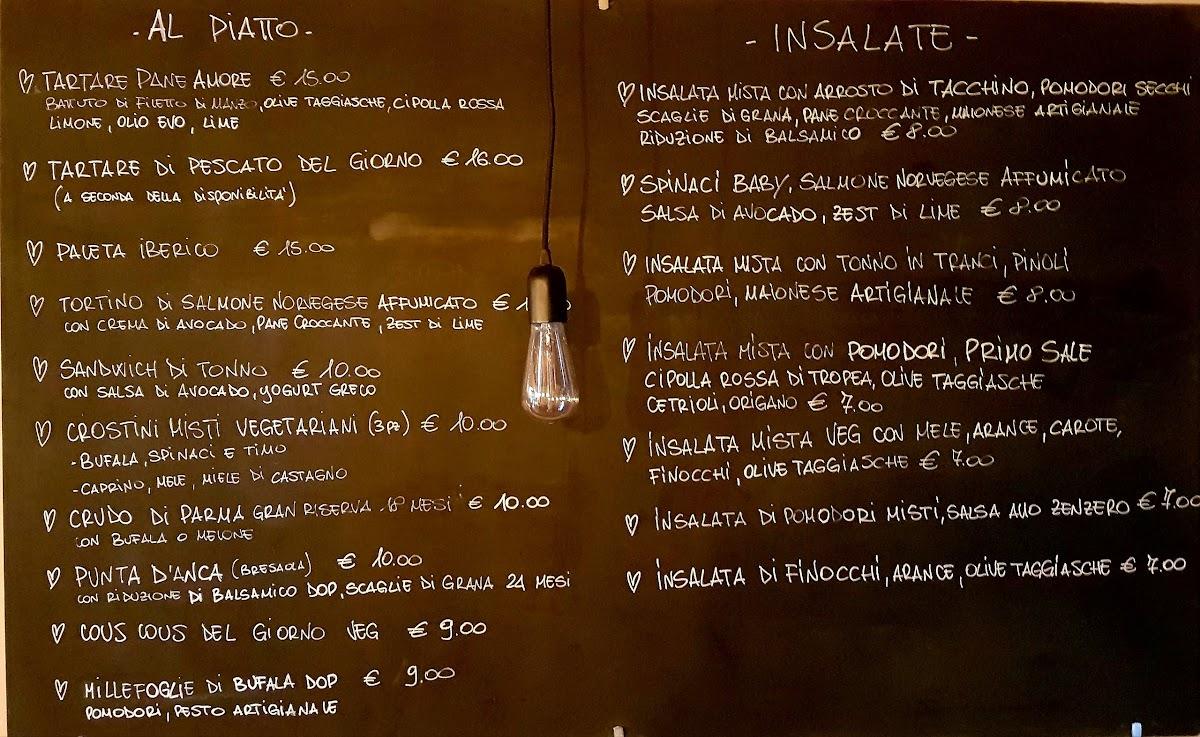 - AL PIATTO -
TARTARE PANE AMORE € 15.00
BATTUTO DI FILETTO DI MANZO, OLIVE TAGGIASCHE, CIPOLLA ROSSA
LIMONE, OLIO EVO, LIME
TARTARE DI PESCATO DEL GIORNO € 16.00
(A SECONDA DELLA DISPONIBILITA')
PALETA IBERICO € 15.00
TORTINO DI SALMONE NORVEGESE AFFUMICATO €
CON CREMA DI AVOCADO, PANE CROCCANTE, ZEST DI LIME
SANDWICH DI TONNO € 10.00
CON SALSA DI AVOCADO, YOGURT GRECO
CROSTINI MISTI VEGETARIANI (3pz) € 10.00
- BUFALA, SPINACI E TIMO
- CAPRINO, MELE, MIELE DI CASTAGNO
CRUDO DI PARMA GRAN RISERVA MESI € 10.00
CON BUFALA O MELONE
PUNTA D'ANCA (BRESAOLA) € 10.00
CON RIDUZIONE DI BALSAMICO DOP, SCAGLIE DI GRANA 24 MESI
COUS COUS DEL GIORNO VEG € 9.00
MILLEFOGLIE DI BUFALA DOP € 9.00
POMODORI, PESTO ARTIGIANALE
- INSALATE -
INSALATA MISTA CON ARROSTO DI TACCHINO, POMODORI SECCHI
SCAGLIE DI GRANA, PANE CROCCANTE, MAIONESE ARTIGIANALE
RIDUZIONE DI BALSAMICO € 8.00
SPINACI BABY, SALMONE NORVEGESE AFFUMICATO
SALSA DI AVOCADO, ZEST DI LIME € 8.00
INSALATA MISTA CON TONNO IN TRANCI, PINOLI
POMODORI, MAIONESE ARTIGIANALE € 8.00
INSALATA MISTA CON POMODORI, PRIMO SALE
CIPOLLA ROSSA DI TROPEA, OLIVE TAGGIASCHE
CETRIOLI, ORIGANO € 7.00
INSALATA MISTA VEG CON MELE, ARANCE, CAROTE,
FINOCCHI, OLIVE TAGGIASCHE € 7.00
INSALATA DI POMODORI MISTI, SALSA ALLO ZENZERO € 7.00
INSALATA DI FINOCCHI, ARANCE, OLIVE TAGGIASCHE € 7.00